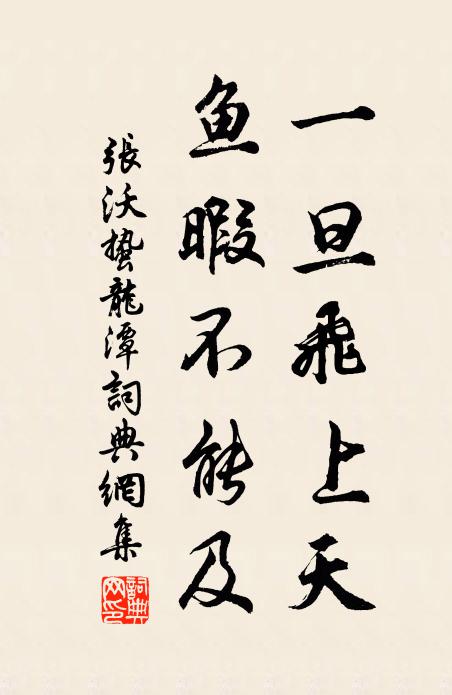 一旦飛上天
鱼暇不能及
張沃蟄龍潭詞典網集
詞典网印